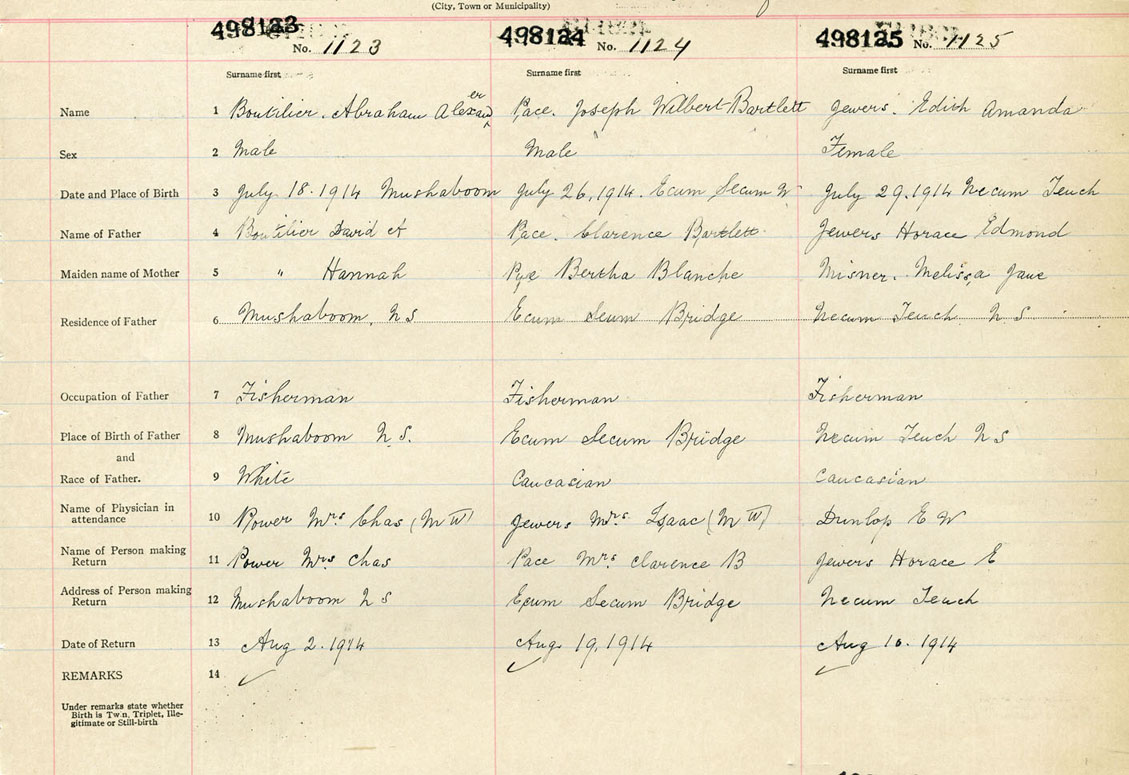 (City, Town or Municipality)
498123 498124 498125
No. 1123 No. 1124 No. 1125
Surname first Surname first Surname first
Name 1 Boutilier. Abraham Alexander Pace. Joseph Wilbert Bartlett Jewers. Edith Amanda
Sex 2 Male Male Female
Date and Place of Birth 3 July 18. 1914 Mushaboom July 26, 1914. Ecum Secum W July 29. 1914 Necum Teuch
Name of Father 4 Boutilier David A Pace. Clarence Bartlett. Jewers Horace Edmond
Maiden name of Mother 5 " Hannah Pye Bertha Blanche Misner. Melissa Jane
Residence of Father 6 Mushaboom, N S Ecum Seum Bridge Necum Teuch N S
Occupation of Father 7 Fisherman Fisherman Fisherman
Place of Birth of Father 8 Mushaboom N.S. Ecum Secum Bridge Necum Teuch N S
and
Race of Father. 9 White Caucasian Caucasian
Name of Physician in
attendance 10 Power Mrs Chas (M W) Jewers Mrs Isaac (M W) Dunlop E W
Name of Person making
Return 11 Power Mrs Chas Pace Mrs Clarence B Jewers Horace E
Address of Person making
Return 12 Mushaboom N S Ecum Secum Bridge Necum Teuch
Date of Return 13 Aug 2. 1914 Aug 19, 1914 Aug 10. 1914
REMARKS 14
Under remarks state whether
Birth is Twin, Triplet, Ille-
gitimate or Still-birth